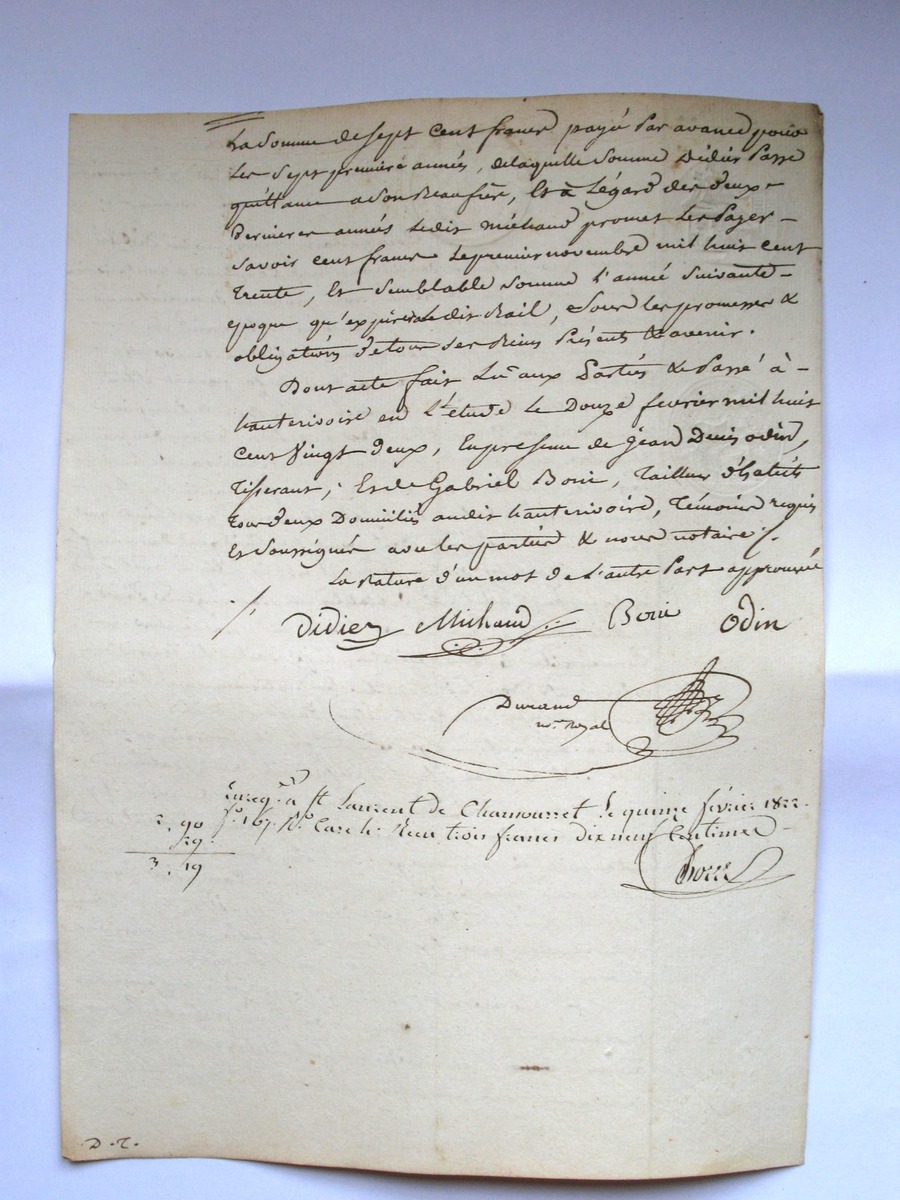 La Somme de Sept Cent francs payé Par avance pour
Les Sept premiere années, delaquelle Somme Didier Passe
quittance a Son Beaufrère, Et à Légard des deux
dernieres années Ledit Michaud promet Les Payer
Savoir cent francs Lepremier novembre mil huit cent
trente, Et Semblable Somme L'année Suivante
epoque qu'expirera Ledit Bail, Sous les promesses &
obligations de tous Ses Biens Présents & avenir.
Dont acte fait Lu aux Parties & Passé à
hauterivoire en L'étude Le Douze fevrier mil huit
Cent Vingt deux, En presence de jean Denis odin,
Tisserant, Et de Gabriel Borie, Tailleur d'habits
tous deux Domiciliés audit hauterivoire, Témoins requis
Et Soussignés avec les parties & nous notaire ./.
La Rature d'un mot de L'autre Part approuvée
Didier Michaud Borie Odin
Durand
nre. Royal
Enreg. a St Laurent de Chamousset le quinze février 1822.
fo. 167. Ro. Case 4. Recu trois francs dix neuf Centimes
2. 90
29
3. 19
D. T.